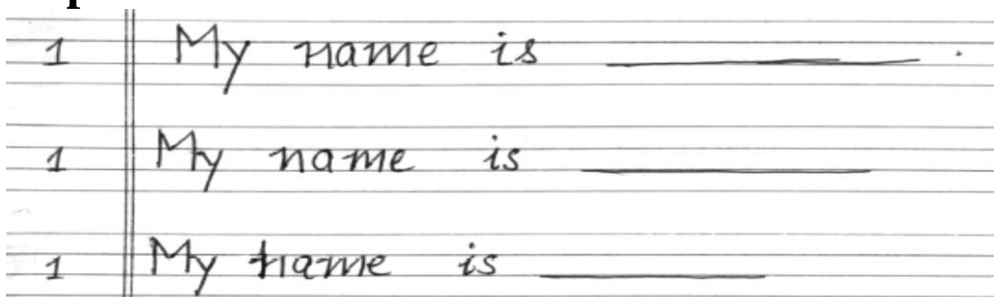 1 My name is ________ .
1 My name is ________
1 My name is ________